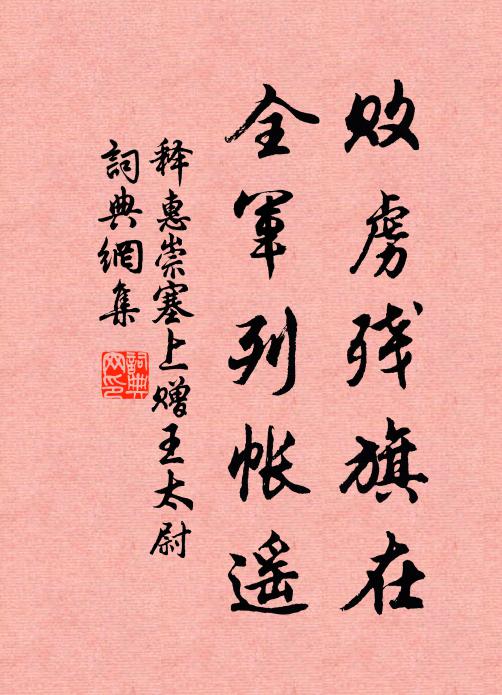 败虏残旗在
全军列帐遥
释惠崇塞上赠王太尉
詞典網集
詞典网印